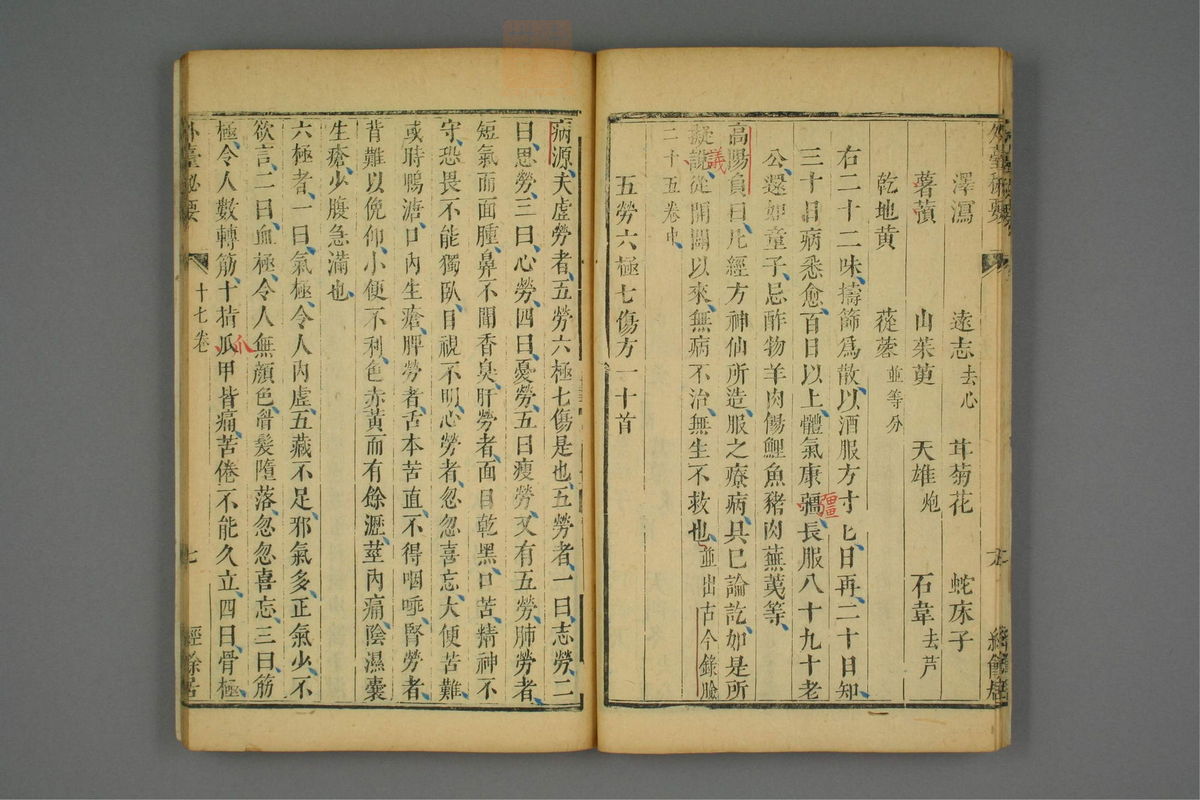 澤瀉 遠志去心 茸菊花 蛇床子
薯蕷 山茱萸 天雄炮 石韋去芦
乾地黃 蓯蓉並等分
右二十二味擣篩爲散以酒服方寸匕日再二十日知
三十日病悉愈百日以上體氣康彊長服八十九十老
疆
公還如童子忌酢物羊肉餳鯉魚豬肉蕪荑等
高陽負曰凡經方神仙所造服之療病具已論訖如是所
擬說從開闢以來無病不治無生不救也並出古今錄驗
議
二十五卷中
五勞六極七傷方一十首
病源夫虛勞者五勞六極七傷是也五勞者一曰志勞二
曰思勞三曰心勞四曰憂勞五曰瘦勞又有五勞肺勞者
短氣而面腫鼻不聞香臭肝勞者面目乾黑口苦精神不
守恐畏不能獨臥目視不明心勞者忽忽喜忘大便苦難
或時鴨溏口內生瘡脾勞者舌本苦直不得咽唾腎勞者
背難以俛仰小便不利色赤黃而有餘瀝莖內痛陰濕囊
生瘡少腹急滿也
六極者一曰氣極令人內虛五藏不足邪氣多正氣少不
欲言二曰血極令人無顏色眉髮墮落忽忽喜忘三曰筋
極令人數轉筋十指瓜甲皆痛苦倦不能久立四曰骨極
爪
外臺秘要 十七卷 七 經餘居